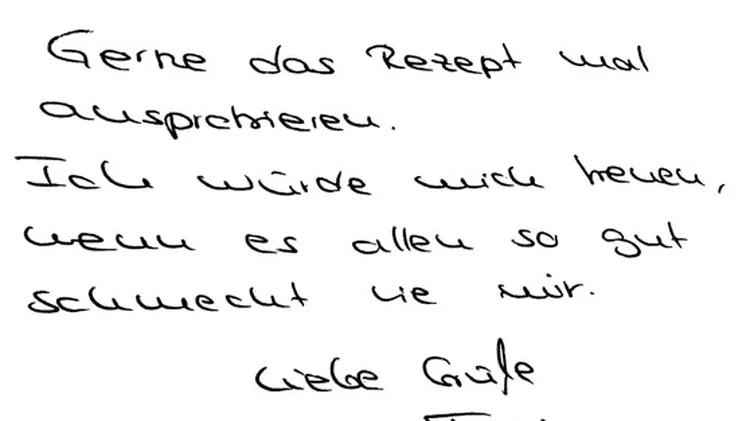 Gerne das Rezept mal
ausprobieren.
Ich würde mich freuen,
wenn es allen so gut
schmeckt wie mir.
Liebe Grüße